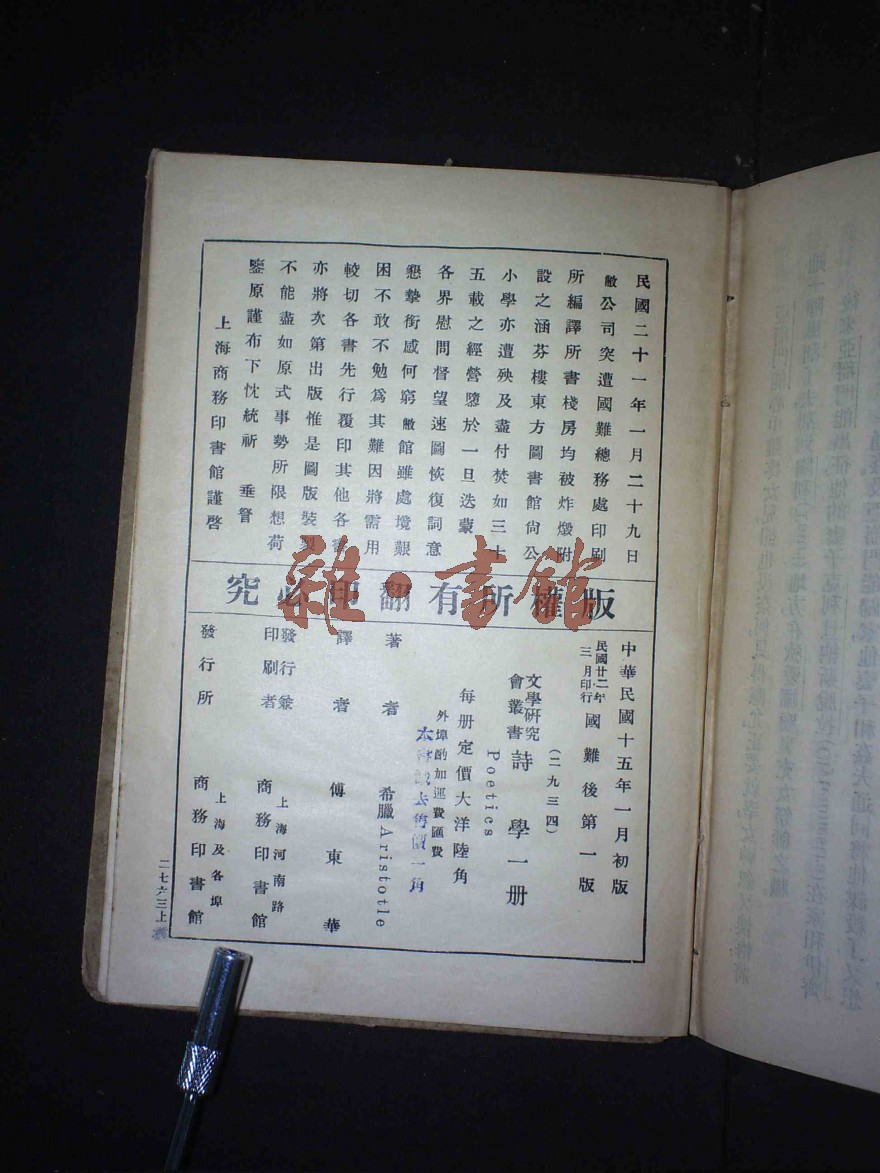 民國二十一年一月二十九日
敝公司突遭國難總務處印刷
所編譯所書棧房均被炸燬附
設之涵芬樓東方圖書館尙公
小學亦遭殃及盡付焚如三十
五載之經營隳於一旦迭蒙
各界慰問督望速圖恢復詞意
懇摯銜感何窮敝館雖處境艱
困不敢不勉爲其難因將需用
較切各書先行覆印其他各書
亦將次第出版惟是圖版裝製
不能盡如原式事勢所限想荷
鑒原謹布下忱統祈 垂詧
上海商務印書館謹啓
版權所有翻印必究
中華民國十五年一月初版
民國廿二年三月印行 國難後第一版
(二九三四)
文學研究會叢書 詩學一册
Poetics
每册定價大洋陸角
外埠酌加運費匯費
著者 希臘Aristotle
譯者 傅東華
發行兼印刷者 上海河南路 商務印書館
發行所 上海及各埠 商務印書館
二七六三上
雜·書館